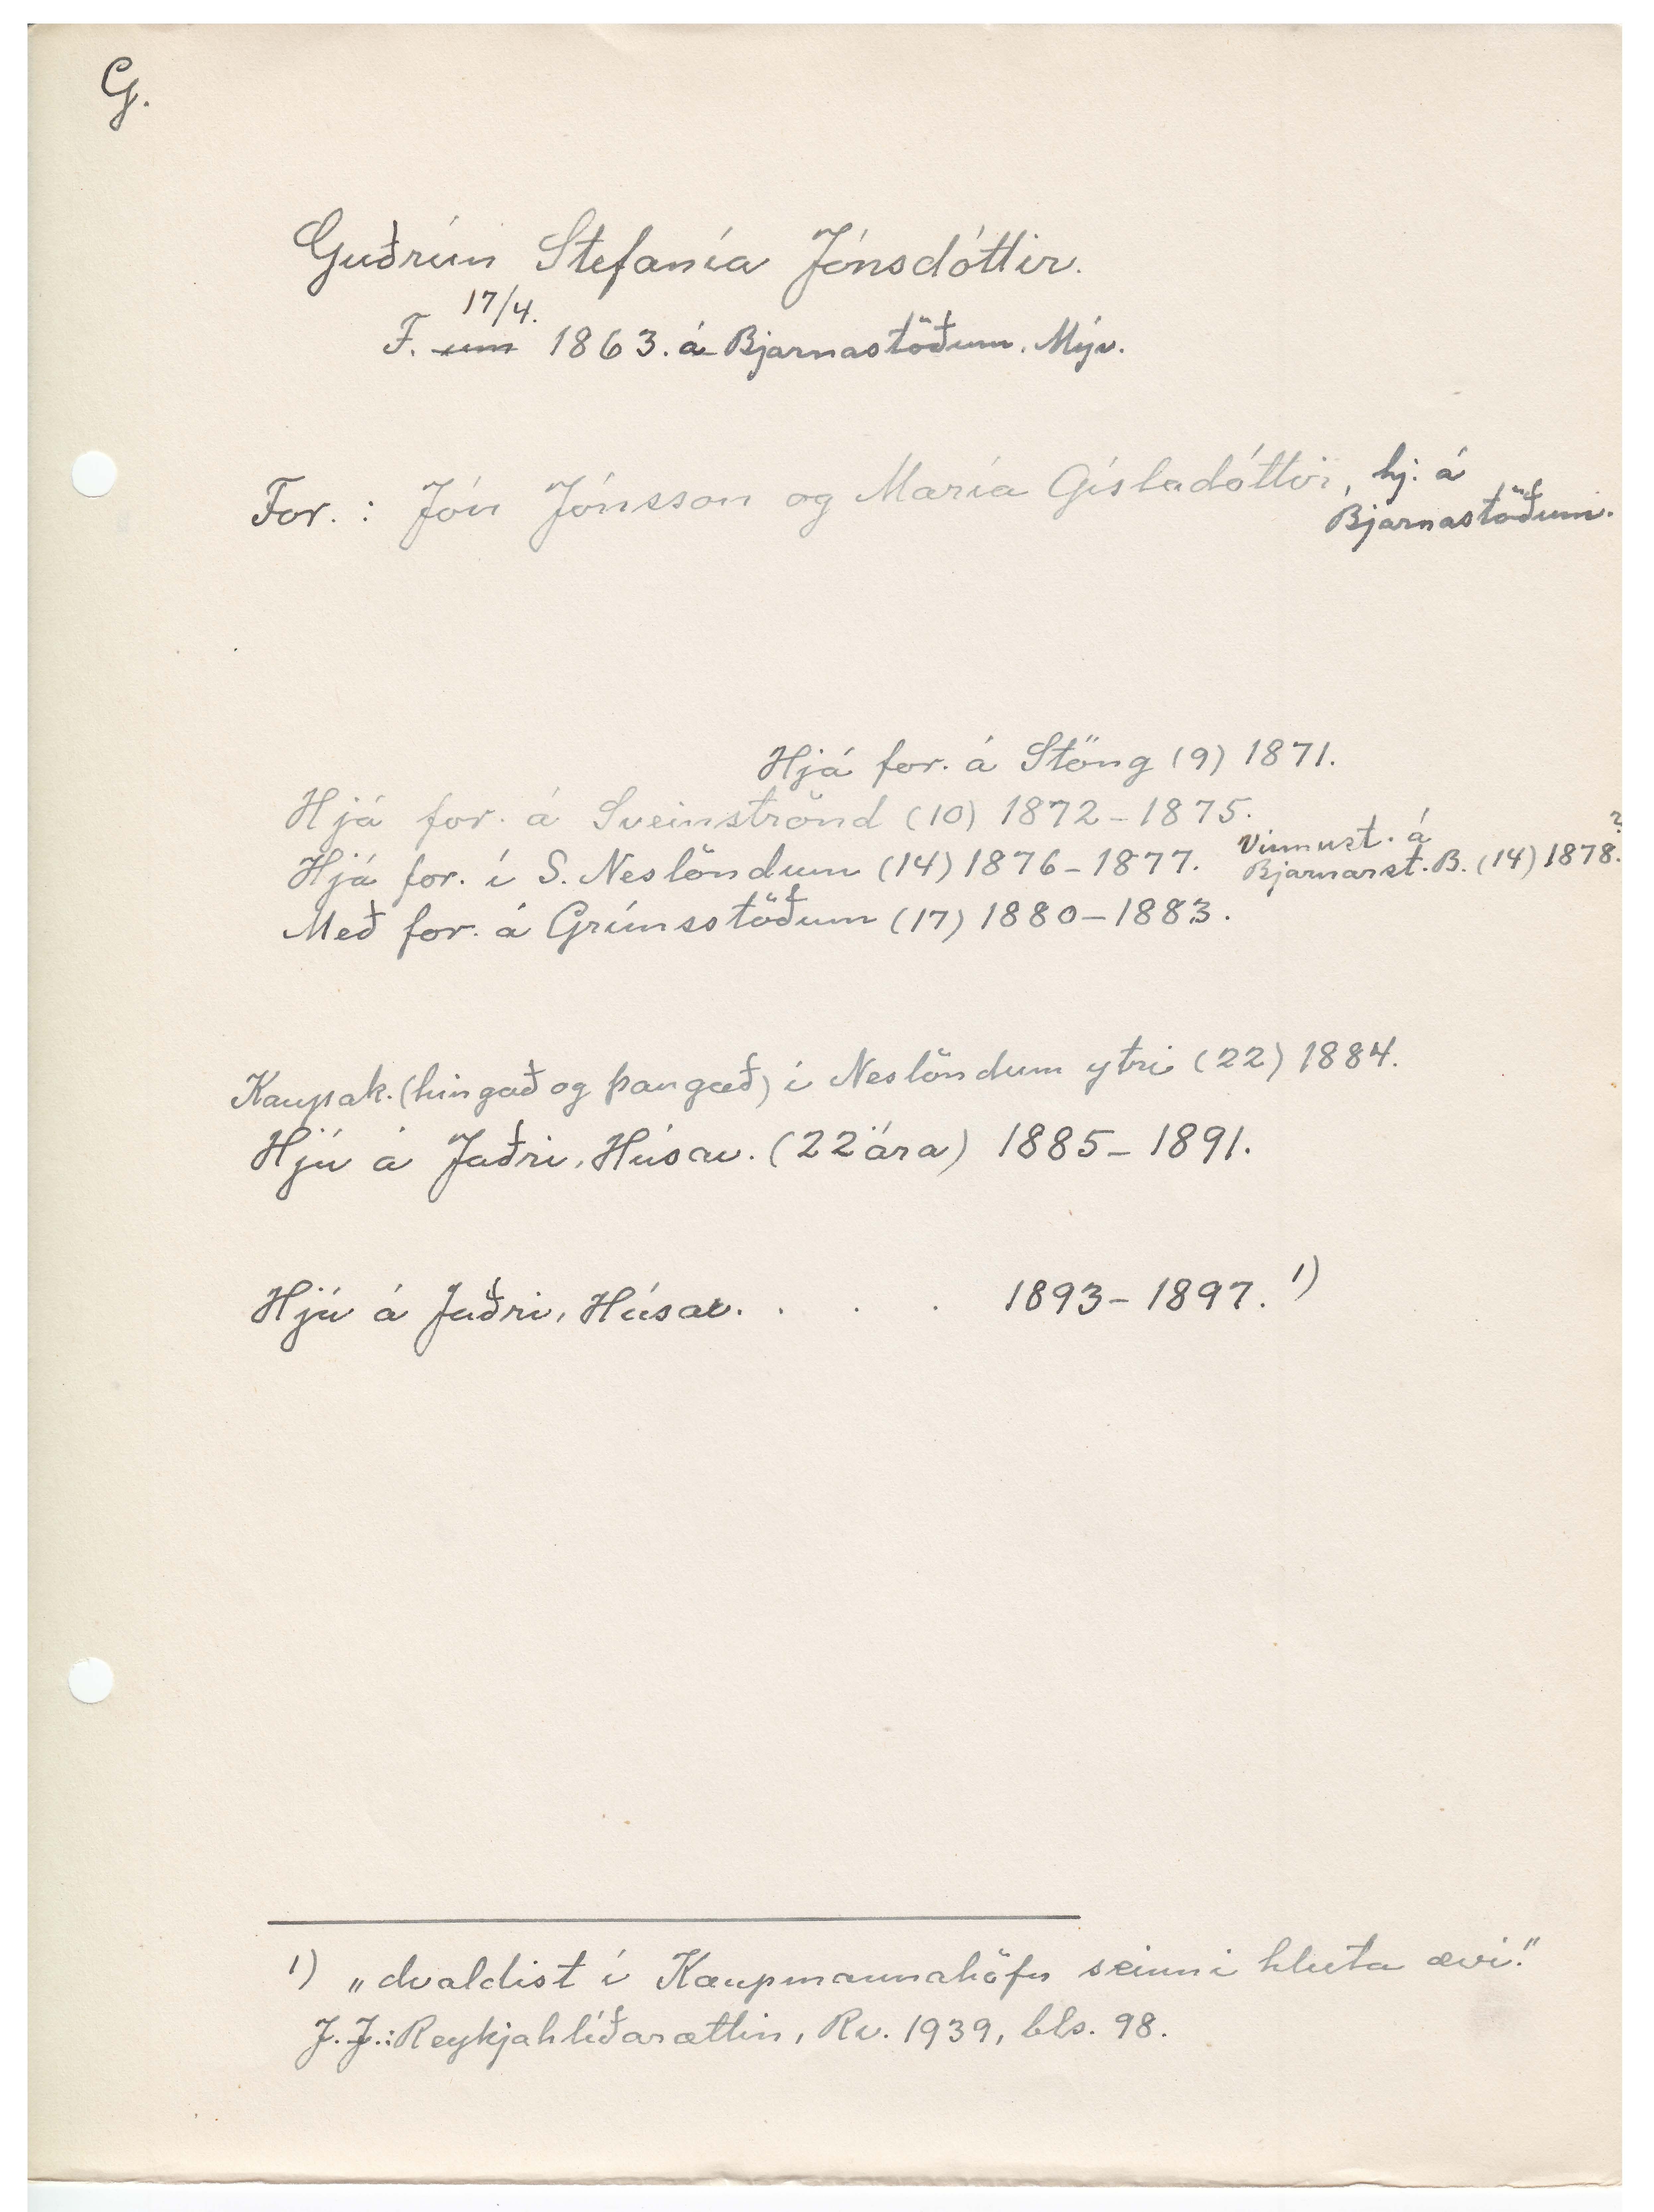 G.
Guðrún Stefanía Jónsdóttir.
17/4.
F. um 1863. á Bjarnastöðum. Mýv.
For. : Jón Jónsson og María Gísladóttir, hj. á
Bjarnastöðum.
Hjá for. á Stöng (9) 1871.
Hjá for. á Sveinströnd (10) 1872-1875.
Hjá for. í S. Neslöndum (14) 1876-1877. Vinnust. á
Bjarnarst. B. (14) 1878. ?
Með for. á Grímsstöðum (17) 1880-1883.
Kaupak. (hingað og þangað) í Neslöndum ytri (22) 1884.
Hjú á Jaðri, Húsav. (22 ára) 1885-1891.
Hjú á Jaðri, Húsav. . . . 1893-1897. 1)
1) „dvaldist í Kaupmannahöfn seinni hluta ævi."
J. J.: Reykjahlíðarættin, Rv. 1939, bls. 98.